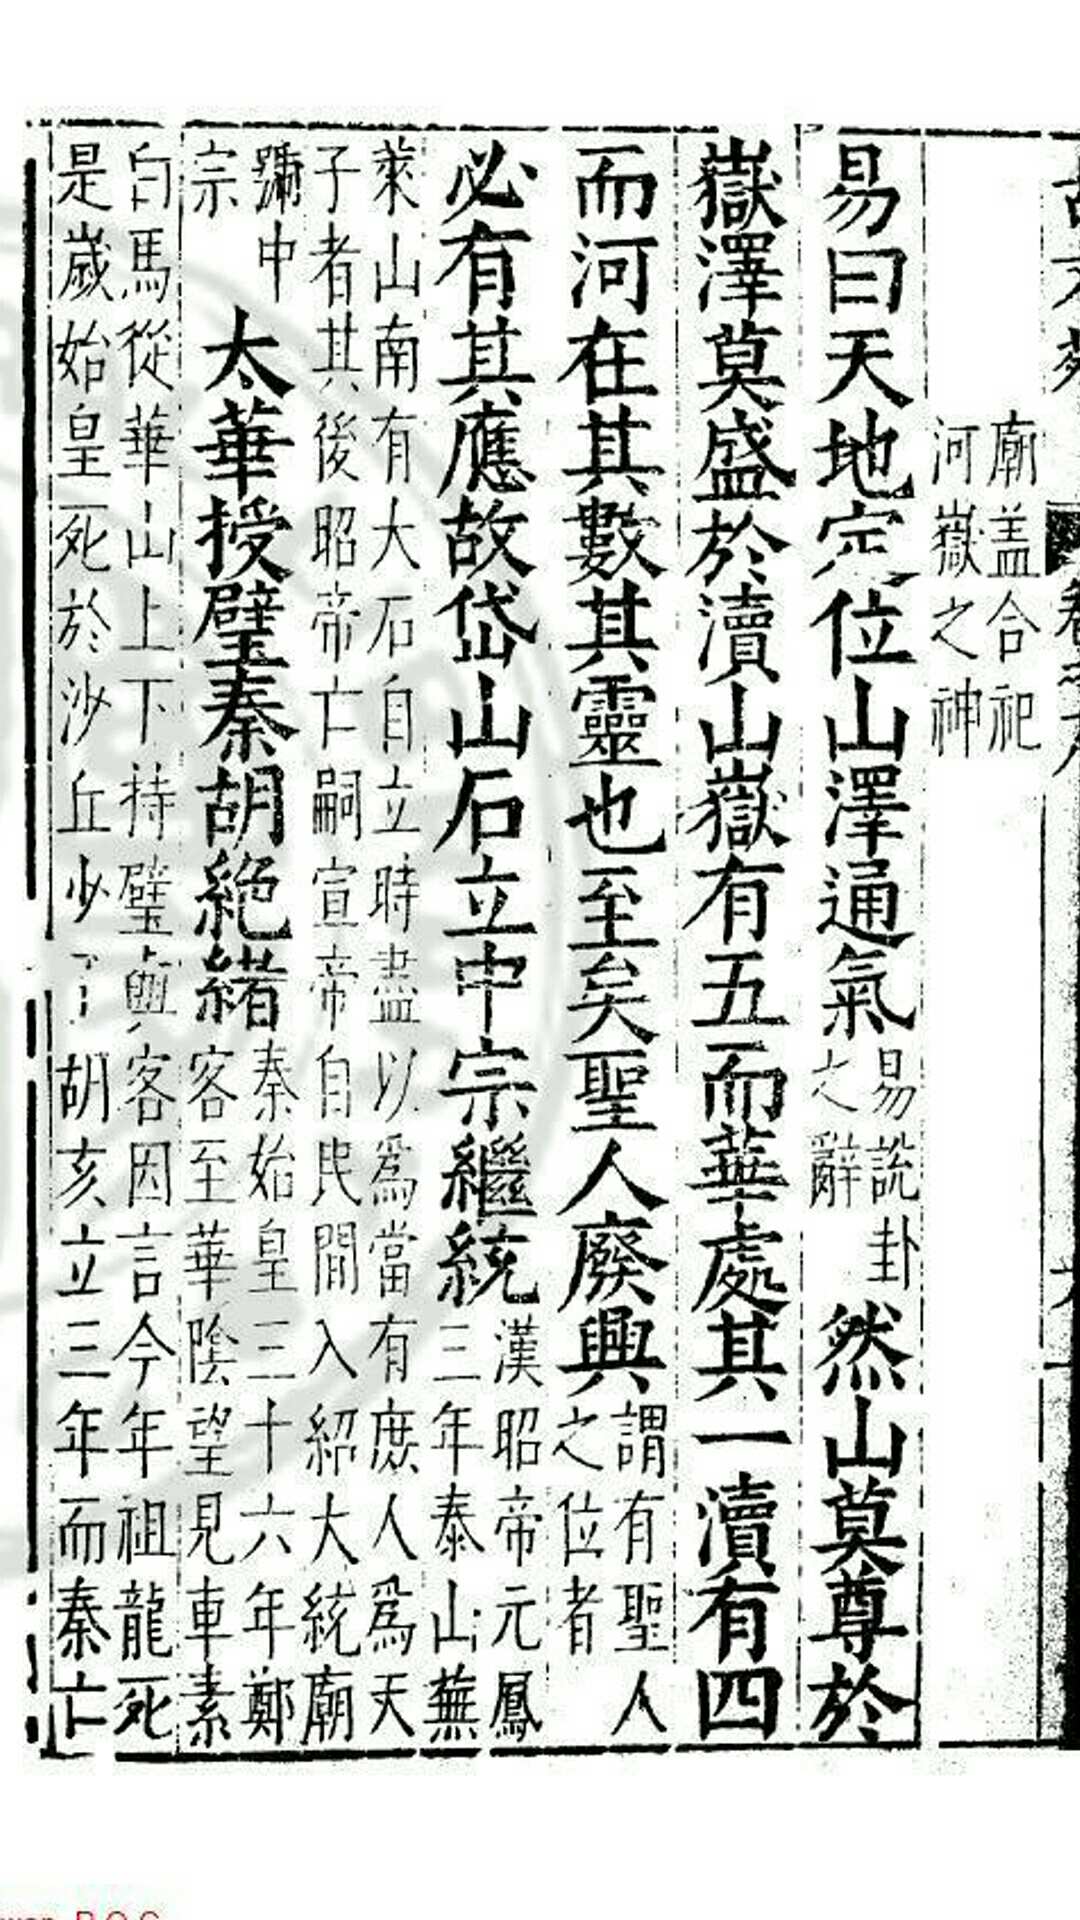 廟盖合祀
河嶽之神
易曰天地定位山澤通氣易說卦之辭然山莫尊於
嶽澤莫盛於瀆山嶽有五而華處其一瀆有四
而河在其數其靈也至矣聖人廢興謂有聖人之位者
必有其應故岱山石立中宗繼統漢昭帝元鳳三年泰山蕪
萊山南有大石自立時盡以爲當有庶人爲天
子者其後昭帝亡嗣宣帝自民間入紹大統廟
號中宗太華授璧秦胡絶緒秦始皇三十六年鄭客至華陰望見車素
白馬從華山上下持璧與客因言今年祖龍死
是歲始皇死於沙丘少胡亥立三年而秦亡